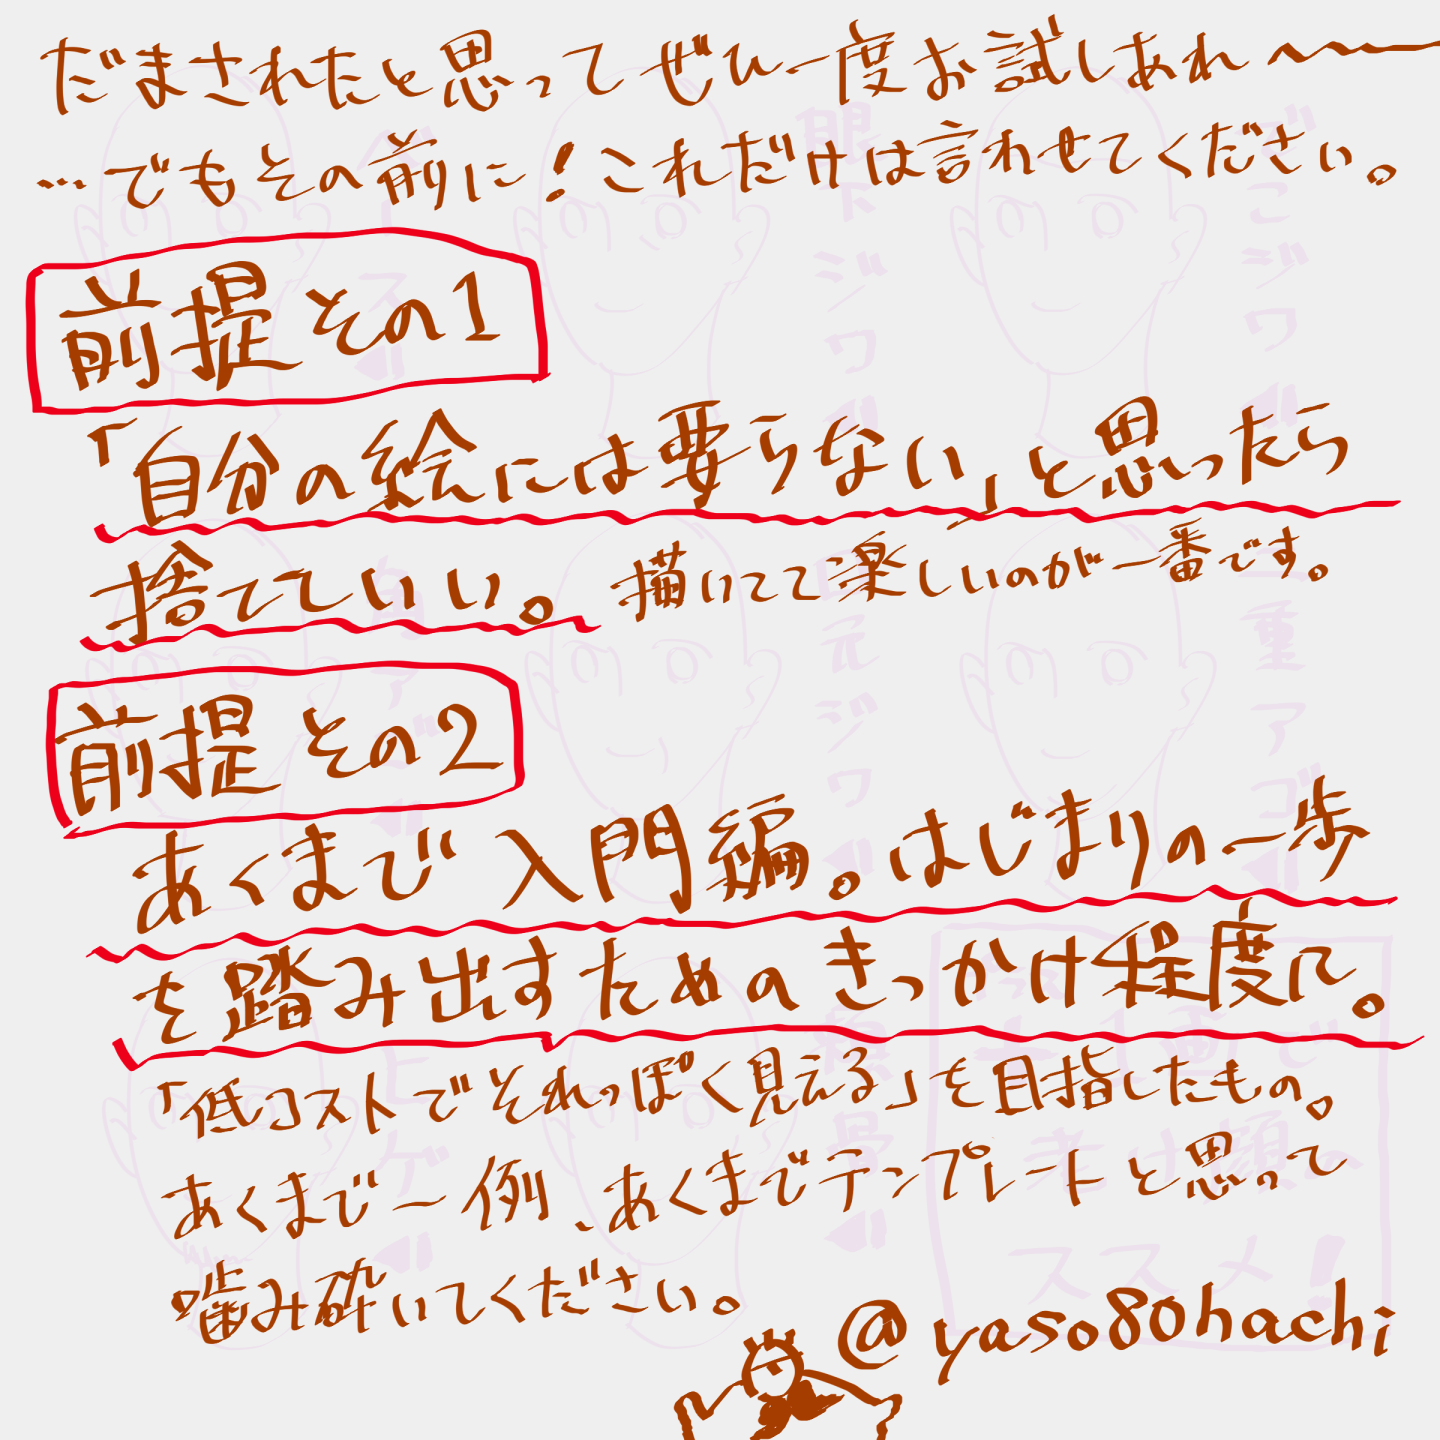 だまされたと思ってぜひ一度お試しあれ〜
…でもその前に!これだけは言わせてください。
前提その1
「自分の絵には要らない」と思ったら
捨てていい。描いてて楽しいのが一番です。
前提その2
あくまで入門編。はじまりの一歩
を踏み出すためのきっかけ程度に。
「低コストでそれっぽく見える」を目指したもの。
あくまで一例、あくまでテンプレートと思って
噛み砕いてください。
@yaso80hachi
眼下ジワ
でこジワ
目元ジワ
二重アゴ
ヒゲ
頬骨
ススメ!